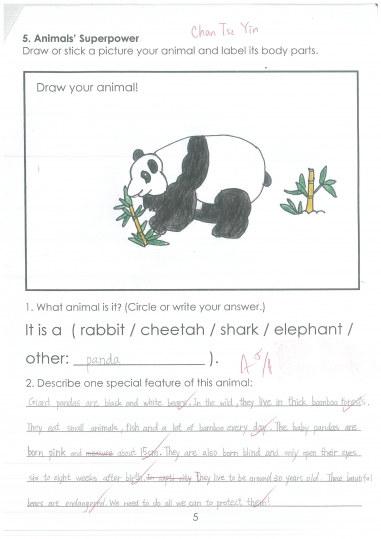 Chan Tsz Yin
5. Animals' Superpower
Draw or stick a picture your animal and label its body parts.
Draw your animal!
1. What animal is it? (Circle or write your answer.)
It is a ( rabbit / cheetah / shark / elephant /
other: panda ).
2. Describe one special feature of this animal:
Giant pandas are black and white bears. In the wild, they live in thick bamboo forests.
They eat small animals, fish and a lot of bamboo every day. The baby pandas are
born pink and measure about 15cm. They are also born blind and only open their eyes
six to eight weeks after birth. In capti vity They live to be around 30 years old. These beautiful
bears are endangered. We need to do all we can to protect them!
5